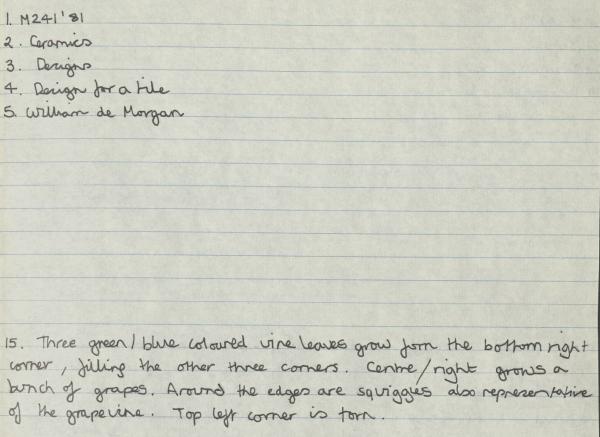 1. M241 '81
2. Ceramics
3. Designs
4. Design for a tile
5. William de Morgan
15. Three green / blue coloured vine leaves grow from the bottom right
corner, filling the other three corners. Centre / right grows a
bunch of grapes. Around the edges are squiggles also representative
of the grapevine. Top left corner is torn.